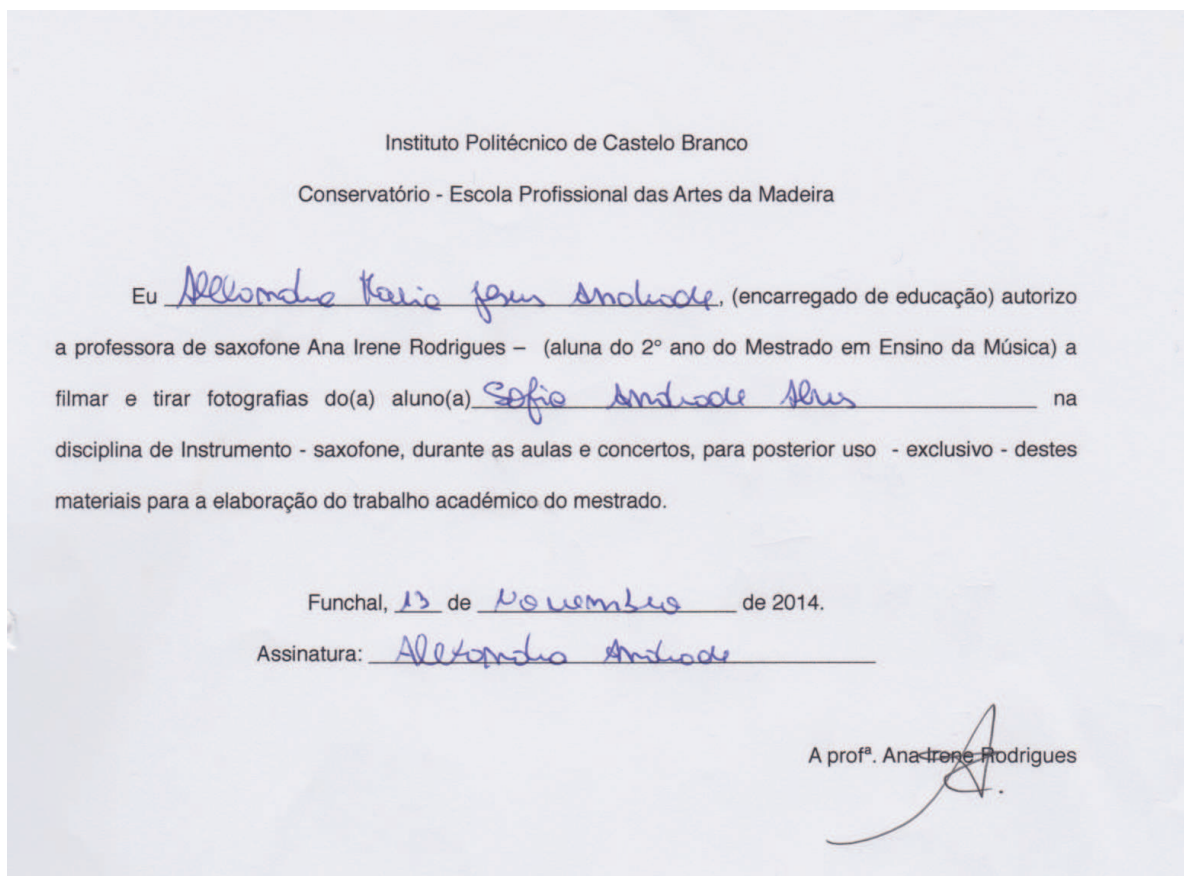 Instituto Politécnico de Castelo Branco
Conservatório - Escola Profissional das Artes da Madeira
Eu Alexandra Maria Jesus Andrade, (encarregado de educação) autorizo
a professora de saxofone Ana Irene Rodrigues – (aluna do 2º ano do Mestrado em Ensino da Música) a
filmar e tirar fotografias do(a) aluno(a) Sofia Andrade Alves na
disciplina de Instrumento - saxofone, durante as aulas e concertos, para posterior uso - exclusivo - destes
materiais para a elaboração do trabalho académico do mestrado.
Funchal, 13 de Novembro de 2014.
Assinatura: Alexandra Andrade
A profª. Ana Irene Rodrigues